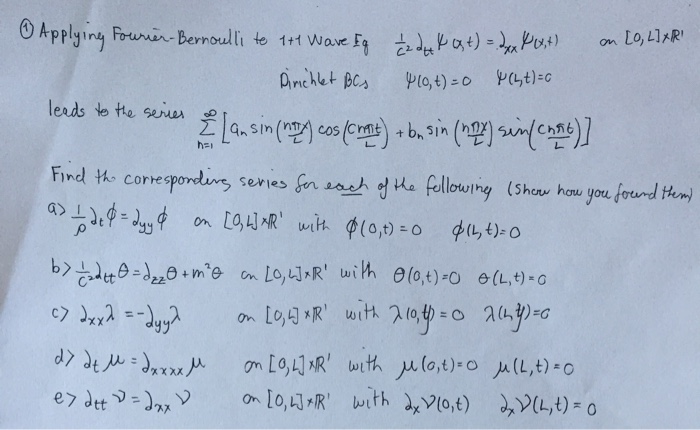 ① Applying Fourier-Bernoulli to 1+1 Wave Eq 1/c² ∂ttψ(x,t) = ∂xxψ(x,t) on [0,L]×R¹
Dirichlet BCs ψ(0,t)=0 ψ(L,t)=0
leads to the series ∞∑n=1 [an sin(nπx/L) cos(cnπt/L) + bn sin(nπx/L) sin(cnπt/L)]
Find the corresponding series for each of the following (show how you found them)
a> 1/ρ ∂tϕ = ∂yyϕ on [0,L]×R¹ with ϕ(0,t)=0 ϕ(L,t)=0
b> 1/c² ∂ttθ = ∂zzθ + m²θ on [0,L]×R¹ with θ(0,t)=0 θ(L,t)=0
c> ∂xxλ = -∂yyλ on [0,L]×R¹ with λ(0,y)=0 λ(L,y)=0
d> ∂tμ = ∂xxxxμ on [0,L]×R¹ with μ(0,t)=0 μ(L,t)=0
e> ∂ttν = ∂xxν on [0,L]×R¹ with ∂xν(0,t) ∂xν(L,t)=0